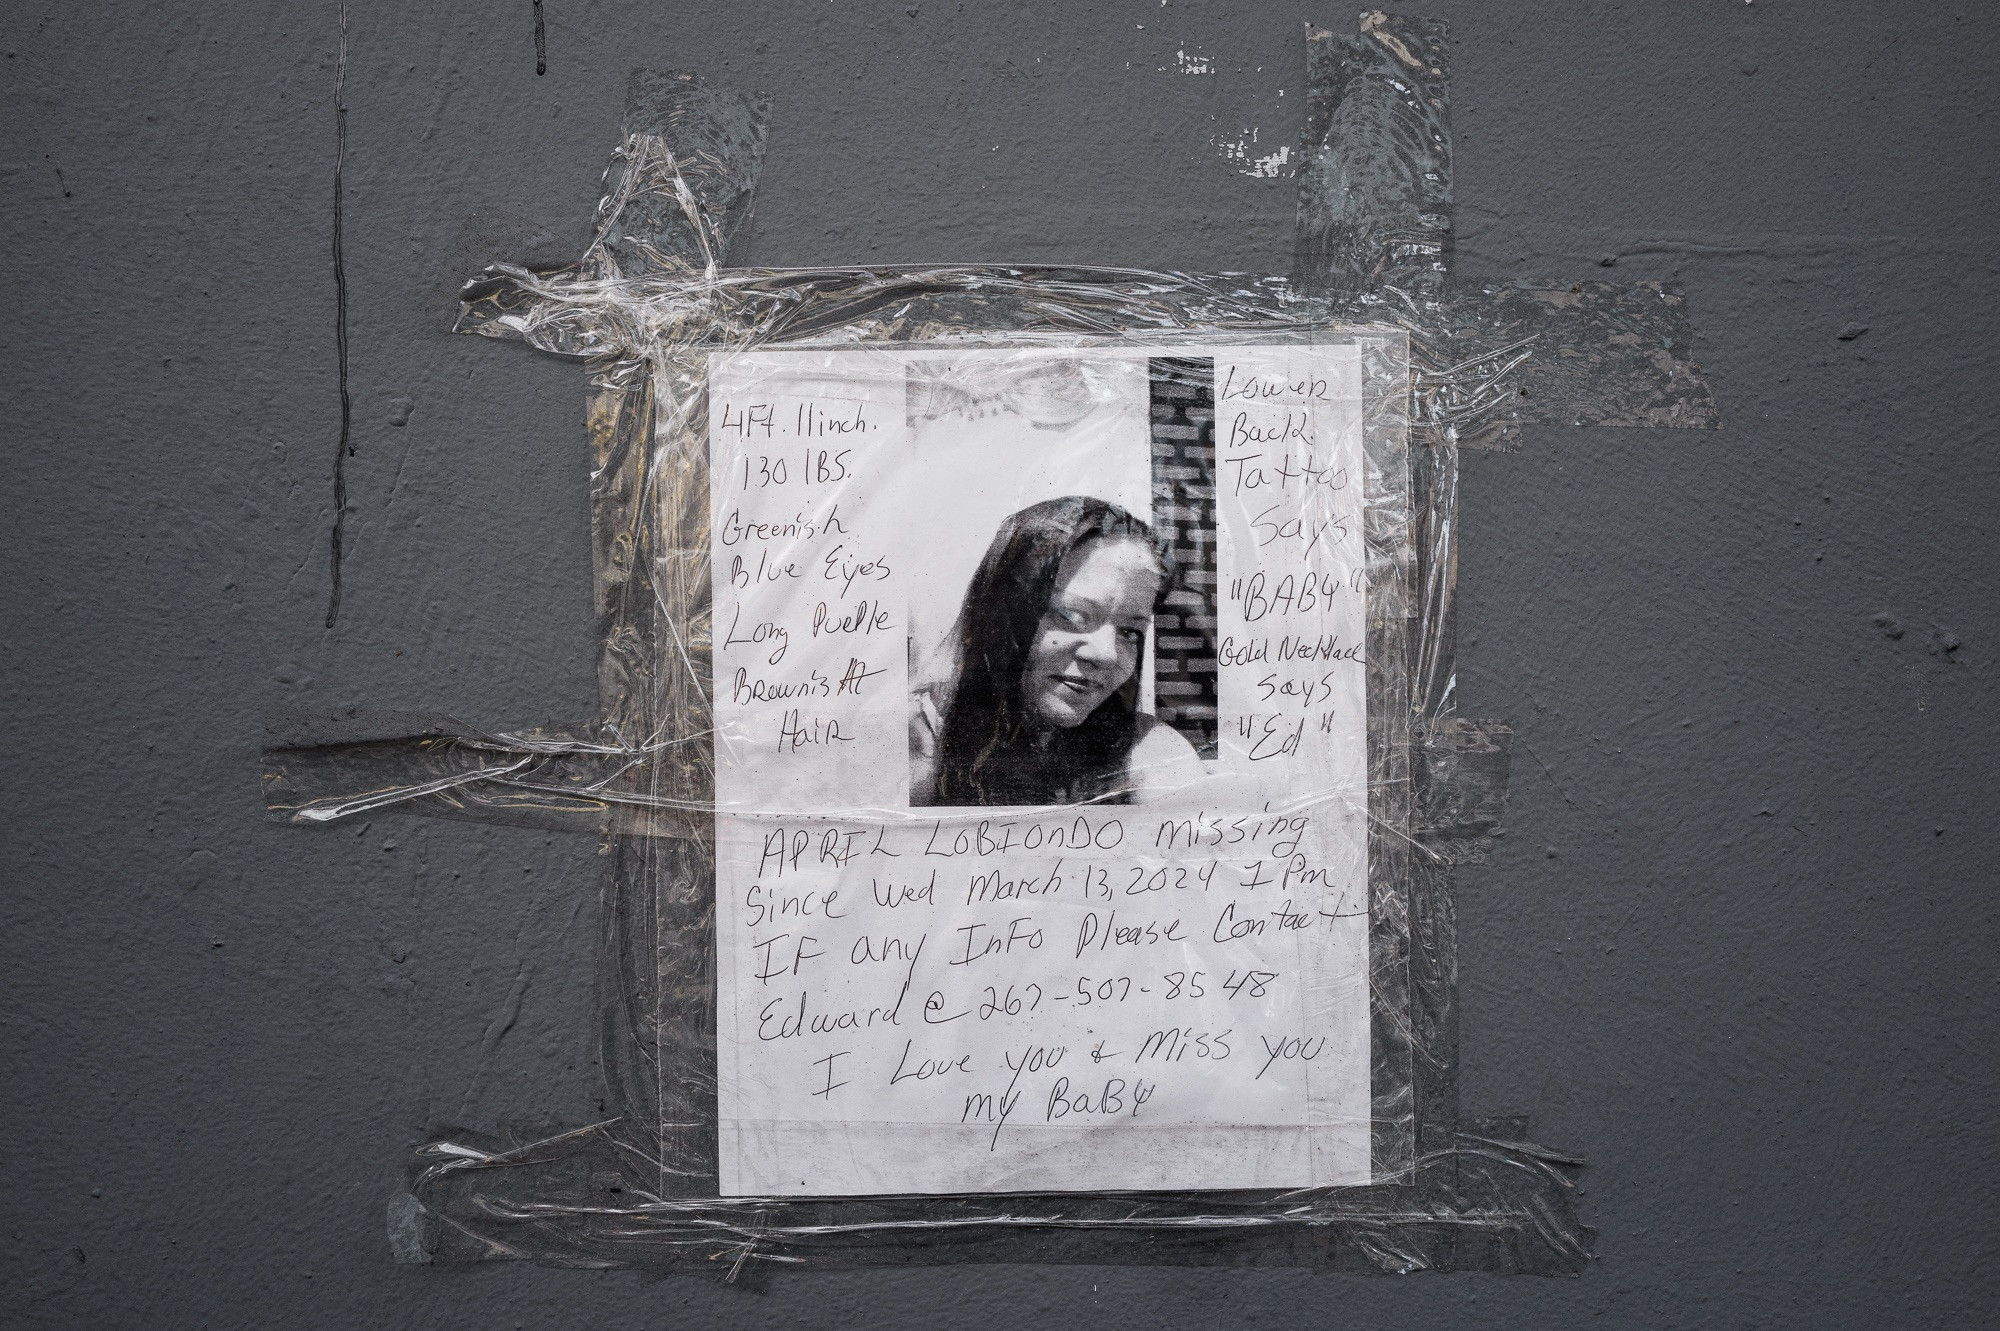 4Ft. 11inch.
130 lBS.
Greenish
Blue Eyes
Long PurPle
Brownish
Hair
Lower
Back
Tattoo
Says
"BABY"
Gold Necklace
Says
"Ed"
APRIL LOBIONDO missing
Since Wed March 13, 2024 1 Pm
IF any InFo Please Contact
Edward @ 267-507-8548
I Love you & Miss you
my BaBY